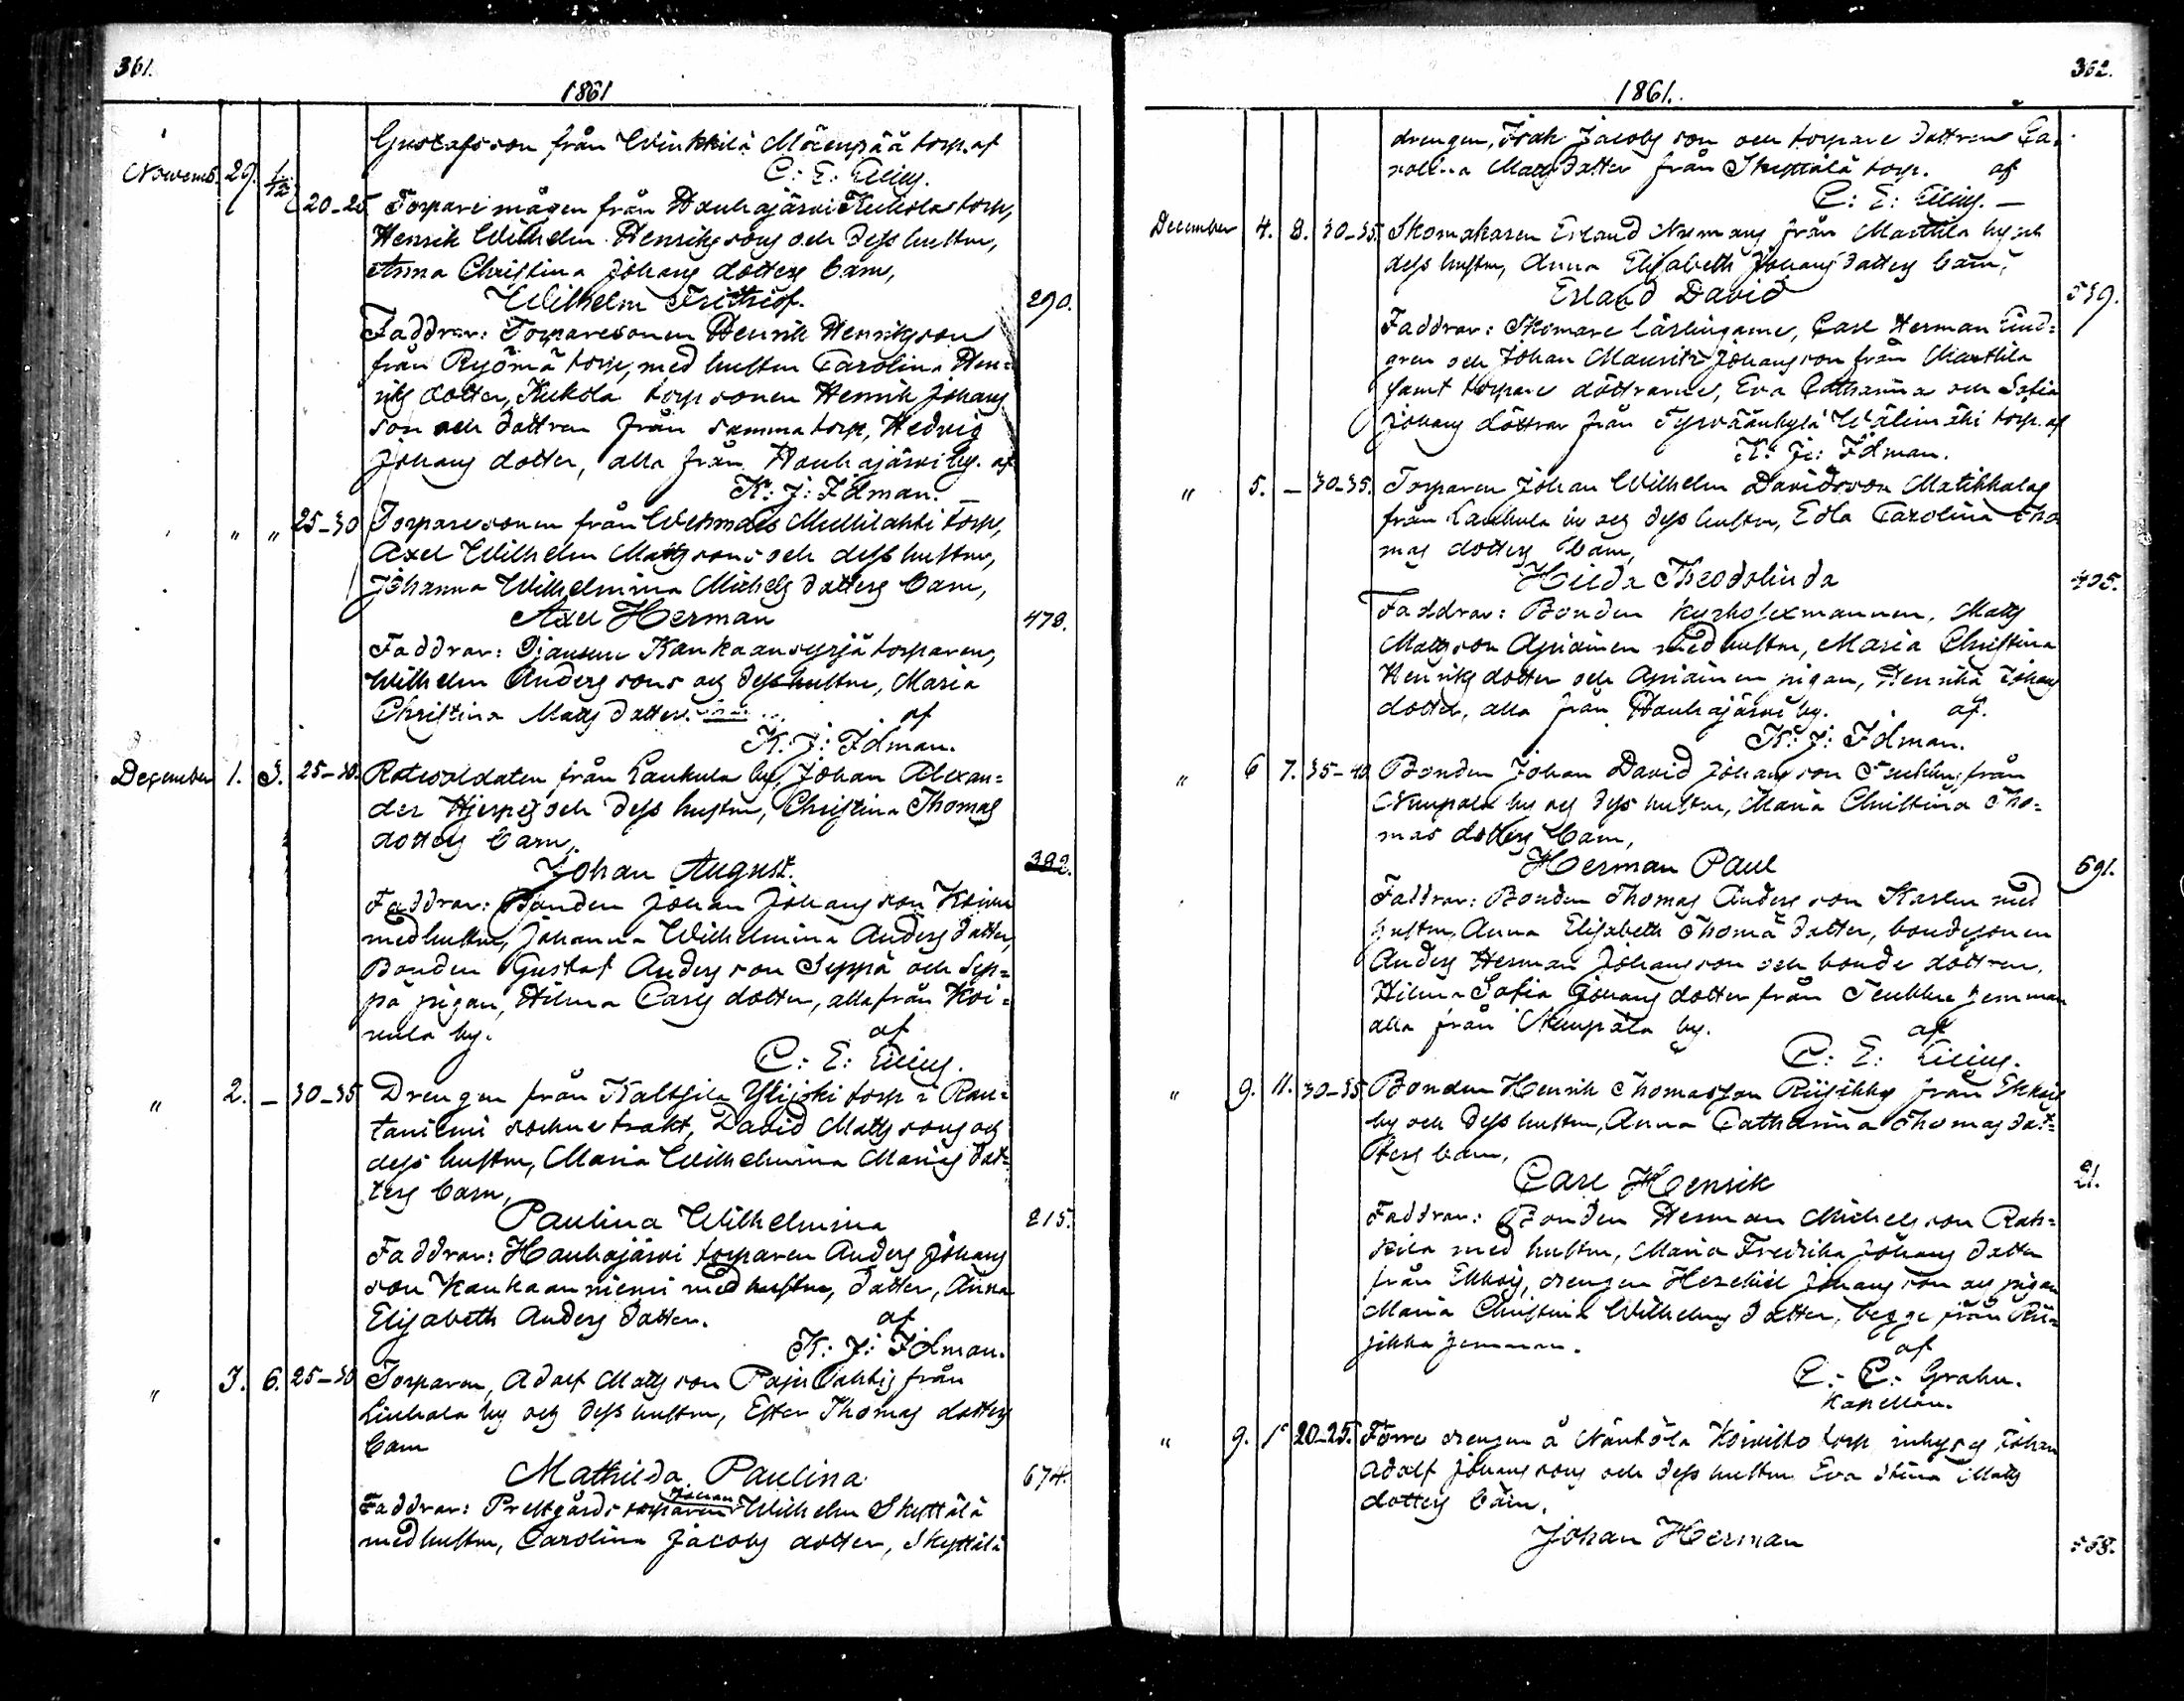 361.
1861
Gustafsson från Winkkilä Mäenpää torp. af
C: E: Lilius.
Novemb. 29. 1/12 20-25 Torparemågen från Hauhajärvi Kukola torp,
Henrik Wilhelm Henrikssons och dess hustru,
Anna Christina Johans dotters barn,
Wilhelm Frithiof. 290.
Faddrar: Torparesonen Henrik Henriksson
från torp, med hustru Carolina Hen=
riks dotter, Kukola torp sonen Henrik Johans
son och dottren från samma torp, Hedvig
Johans dotter, alla från Hauhajärvi by. af
K: J: Idman.
" " 25-30 Torparesonen från Mullilahti torp,
Axel Wilhelm Mattssons och dess hustrus,
Johanna Wilhelmina Michels dotters barn,
Axel Herman 478.
Faddrar: Kankaansyrjä torparen,
Wilhelm Anderssons och dess hustru, Maria
Christina Matts dotter. af
K: J: Idman.
December 1. 3. 25-30. Rotesoldaten från Laukula by, Johan Alexan=
der Hjerpes och dess hustru, Christina Thomas
dotters barn,
Johan August. 382.
Faddrar: Bonden Johan Johansson
med hustru, Johanna Wilhelmina Anders dotter,
Bonden Gustaf Andersson Seppä och Sep=
pä pigan, Hilma Carls dotter, alla från Koi=
nula by. af
C: E: Lilius.
" 2. - 30-35 Drengen från Kaltsila Ylijoki torp i Rau=
taniemi sockne trakt, David Mattssons och
dess hustru, Maria Wilhelmina Marias dot=
ters barn,
Paulina Wilhelmina 215.
Faddrar: Hauhajärvi torparen Anders Johans
son Kankaanniemi med hustru, dotter, Anna
Elisabeth Anders dotter. af
K: J: Idman.
" 3. 6. 25-30 Torparen, Adolf Mattsson Pajulahtis från
Liuhala by och dess hustru, Ester Thomas dotters
barn
Mathilda Paulina 674.
Johan
Faddrar: Prestgårds torparen Wilhelm Skyttälä
med hustru, Carolina Jacobs dotter, Skyttälä
362.
1861.
drengen, Isak Jacobs son och torpare dottren Ca=
rolina Matts dotter från Skyttälä torp. af
C: E: Lilius. -
December 4. 8. 30-35. Skomakaren Erland Nymans från Marttila by och
dess hustru, Anna Elisabeth Johans dotters barn,
Erland David 539.
Faddrar: Skomare lärlingarne, Carl Herman Lind=
gren och Johan Mauritz Johansson från Marttila
samt torpare döttrarne, Eva Catharina och Sofia
Johans döttrar från Tyrväänkylä Wälimäki torp. af
K: J: Idman.
" 5. - 30-35. Torparen Johan Wilhelm Davidsson Matikkalas
från Laukula by och dess hustru, Edla Carolina Tho
mas dotters barn,
Hilda Theodolinda 405.
Faddrar: Bonden kyrkosexmannen, Matts
Mattsson Apiainen med hustru, Maria Christina
Henriks dotter och Apiainen pigan, Henrika Johans
dotter, alla från Hauhajärvi by. af.
K: J: Idman.
" 6 7. 35-40 Bonden Johan David Johansson från
Nuupala by och dess hustru, Maria Christina Tho=
mas dotters barn,
Herman Paul 691.
Faddrar: Bonden Thomas Andersson med
hustru, Anna Elisabeth Thomä dotter, bondesonen
Anders Herman Johansson och bonde dottren,
Hilma Sofia Johans dotter från hemman
alla från Nuupala by. af
C: E: Lilius.
" 9. 11. 30-35 Bonden Henrik Thomasson Riisikkas från Ekkois
by och dess hustru, Anna Catharina Thomas dot=
ters barn,
Carl Henrik 21.
Faddrar: Bonden Herman Michelsson
med hustru, Maria Fredrika Johans dotter
från Ekkois, drengen Hezekiel Johansson och pigan
Maria Christina Wilhelms dotter, begge från Rii=
sikka hemman. af
C. E. Grahn.
Kapellan.
" 9. 20-25. Förre drengen å Näntölä Koivisto torp inhyses Johan
Adolf Johanssons och dess hustru Eva Stina Matts
dotters barn,
Johan Herman 558.